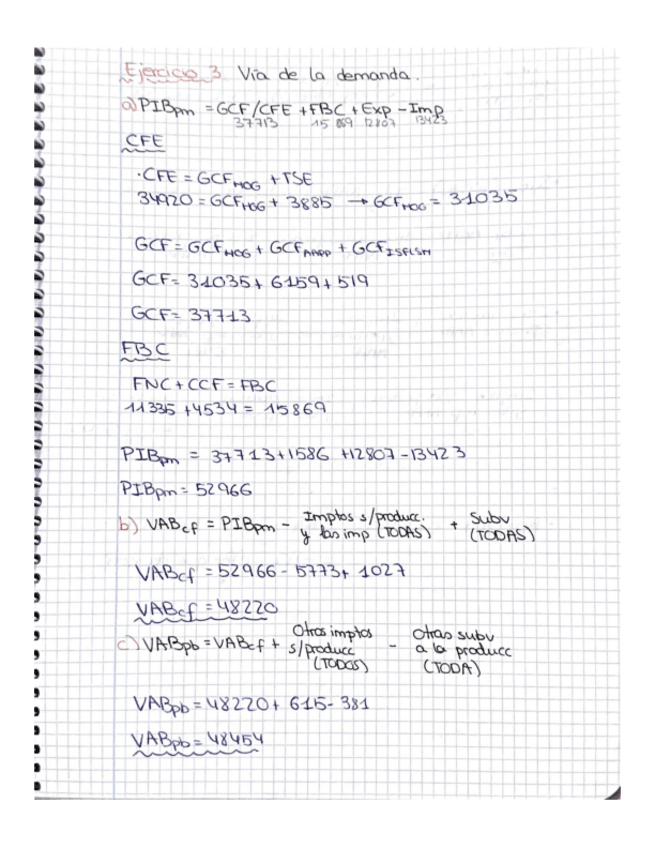 Ejercicio 3 Vía de la demanda.
a) PIBpm = GCF/CFE + FBC + Exp - Imp
37713 15 869 12807 13423
CFE
· CFE = GCF HOG + TSE
34920 = GCF HOG + 3885 → GCF HOG = 31035
GCF = GCF HOG + GCF AAPP + GCF ISFLSH
GCF = 31035 + 6159 + 519
GCF = 37713
FBC
FNC + CCF = FBC
11335 + 4534 = 15869
PIBpm = 37713 + 1586 + 12807 - 13423
PIBpm = 52966
b) VABcf = PIBpm - Imptos s/producc. y las imp (TODAS) + Subv (TODAS)
VABcf = 52966 - 5773 + 1027
VABcf = 48220
c) VABpb = VABcf + Otros imptos s/producc (TODOS) - otras subv a la producc (TODA)
VABpb = 48220 + 615 - 381
VABpb = 48454